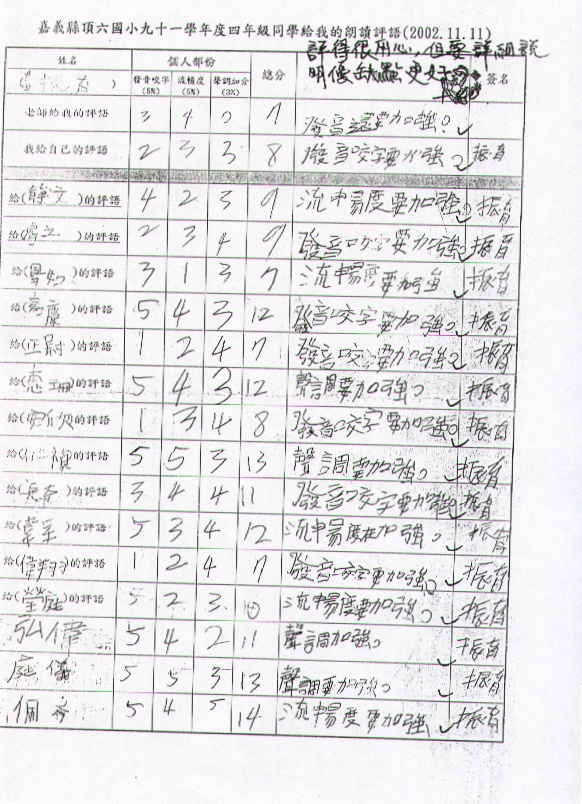 嘉義縣頂六國小九十一學年度四年級同學給我的朗讀評語(2002.11.11)
姓名 個人部份 總分 評得很用心,但要詳細說 簽名
發音咬字(5%) 流暢度(5%) 聲調加分(3%) 明優缺點更好
老師給我的評語 3 4 0 7 發音還要加強。
我給自己的評語 2 3 3 8 發音咬字要加強。 振育
給(靜文)的評語 4 2 3 9 流暢度要加強。 振育
給( )的評語 2 3 4 9 發音咬字要加強。 振育
給( )的評語 3 1 3 7 流暢度要加強 振育
給(亮慶)的評語 5 4 3 12 發音咬字要加強。 振育
給(正尉)的評語 1 2 4 7 發音咬 要加強。 振育
給(惠珊)的評語 5 4 3 12 聲調要加強。 振育
給( )的評語 1 3 4 8 發音咬字要加強。 振育
給( )的評語 5 5 3 13 聲調要加強。 振育
給( )的評語 3 4 4 11 發音咬字要加強 振育
給( )的評語 5 3 4 12 流暢度 加強。 振育
給(偉翔)的評語 1 2 4 7 發音咬字要加強。 振育
給(瑩庭)的評語 5 2 3 10 流暢度要加強。 振育
弘偉 5 4 2 11 聲調加強。 振育
庭儀 5 5 3 13 聲調要加強。 振育
佩 5 4 5 14 流暢度要加強 振育